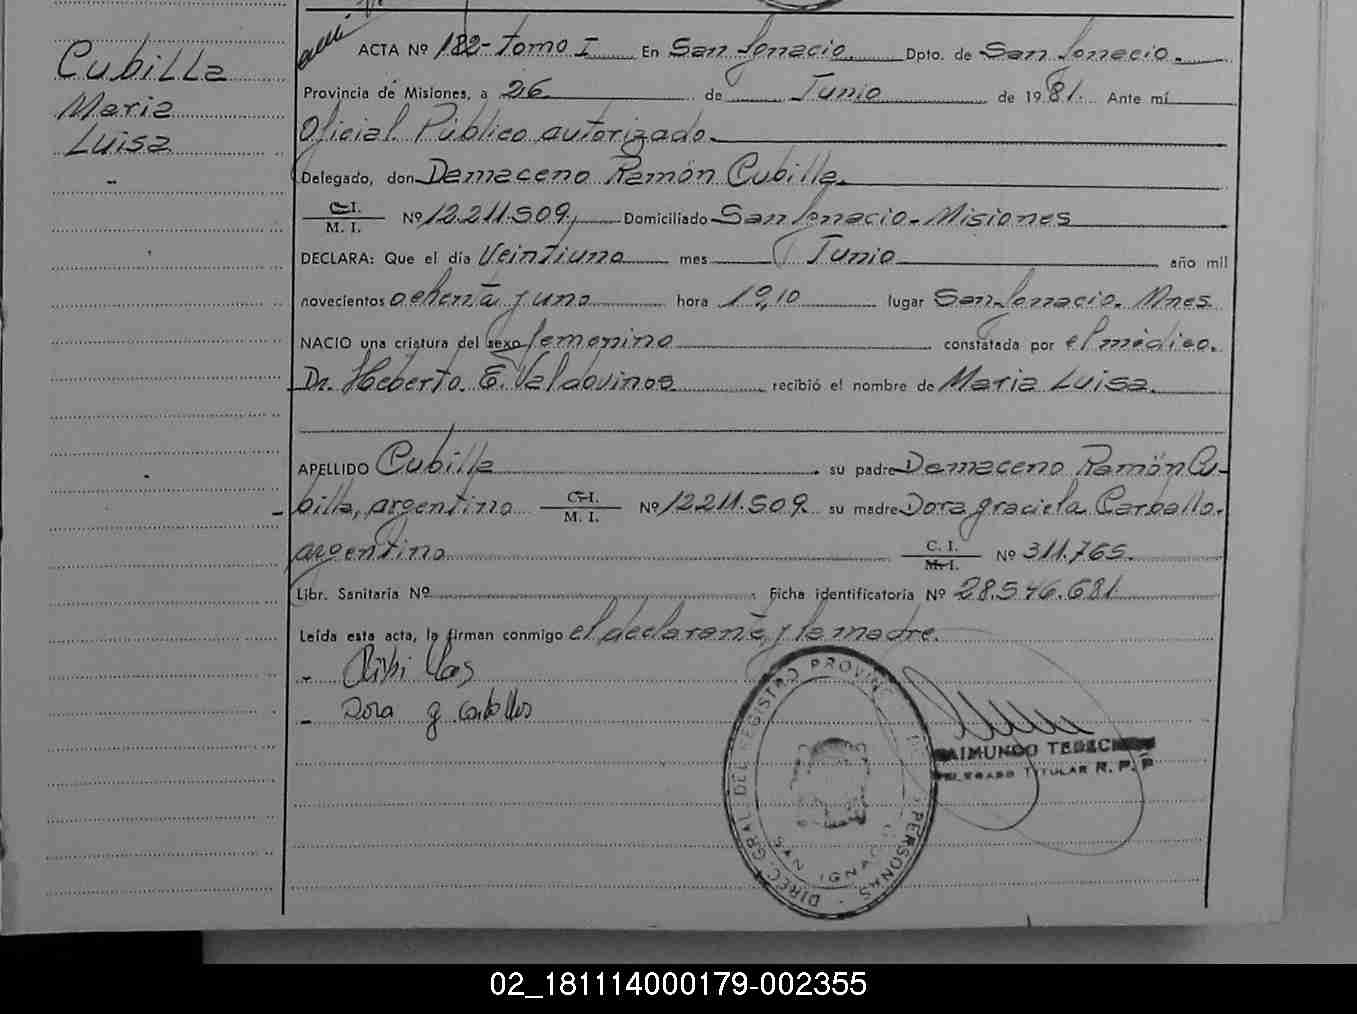 Cubilla
Maria
Luisa
ACTA Nº 182- Tomo I En San Ignacio. Dpto. de San Ignacio.
Provincia de Misiones, a 26 de Junio de 1981. Ante mí
Oficial Público autorizado.
Delegado, don Damaceno Ramón Cubilla.
C.I. M. I. Nº 12.211.509, Domiciliado San Ignacio- Misiones
DECLARA: Que el día Veintiuno mes Junio año mil
novecientos ochenta y uno hora 19,10 lugar San Ignacio. Mnes.
NACIO una criatura del sexo femenino constatada por el médico.
Dr. Heberto E. Valdovinos recibió el nombre de Maria Luisa.
APELLIDO Cubilla su padre Damaceno Ramón Cu-
billa, argentino C.I. M. I. Nº 12.211.509. su madre Dora graciela Carballo.
argentino C. I. M. I. Nº 311.765.
Libr. Sanitaria Nº Ficha identificatoria Nº 28.546.681
Leída esta acta, la firman conmigo el declarante, y la madre.
- Dora g
DIREC. GRAL. DEL REGISTRO PROVINC. DE PERSONAS -
SAN IGNACIO
RAIMUNDO
DELEGADO TITULAR R. P. P
02_181114000179-002355